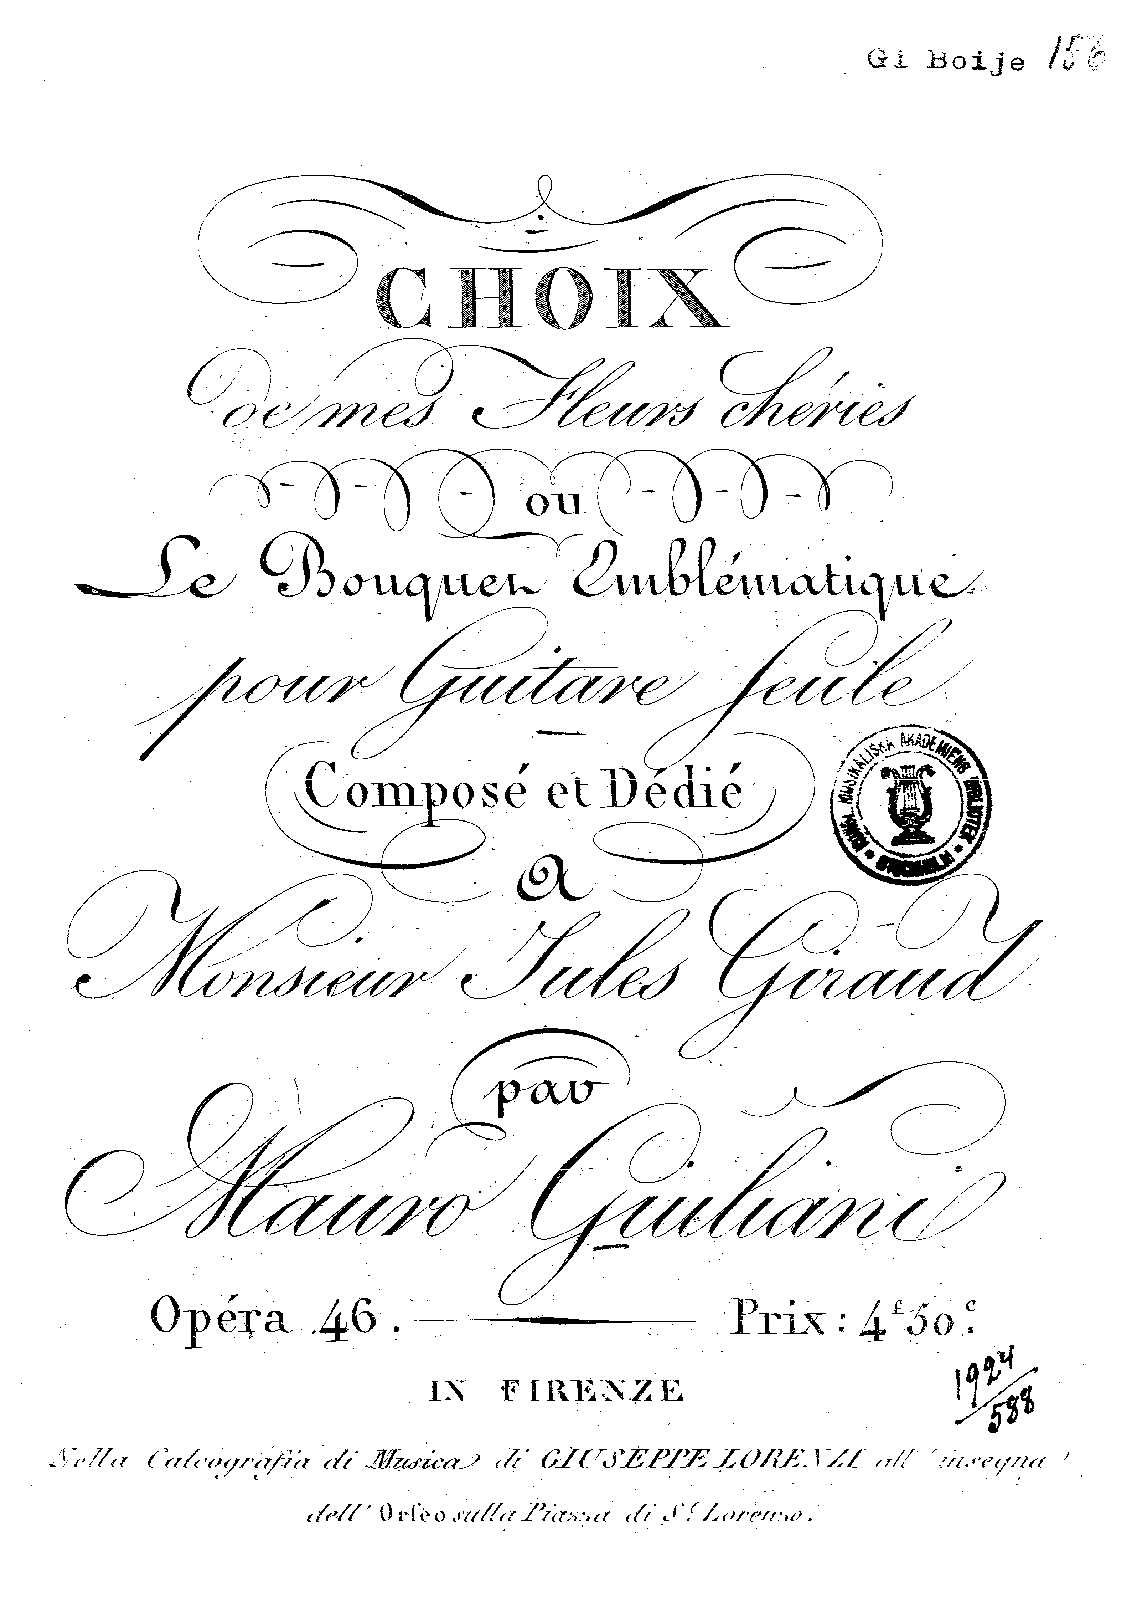 Gi Boije 156
CHOIX
de mes Fleurs chéries
ou
Le Bouquet Emblématique
pour Guitare Seule
Composé et Dédié
A
Monsieur Jules Giraud
par
Mauro Giuliani
Opéra 46. Prix: 4f 50c.
KUNGL MUSIKALISKA AKADEMIENS BIBLIOTEK
STOCKHOLM
IN FIRENZE
1924/588
Nella Calcografia di Musica di GIUSEPPE LORENZI all' insegna
dell' Orfeo sulla Piazza di St. Lorenzo.